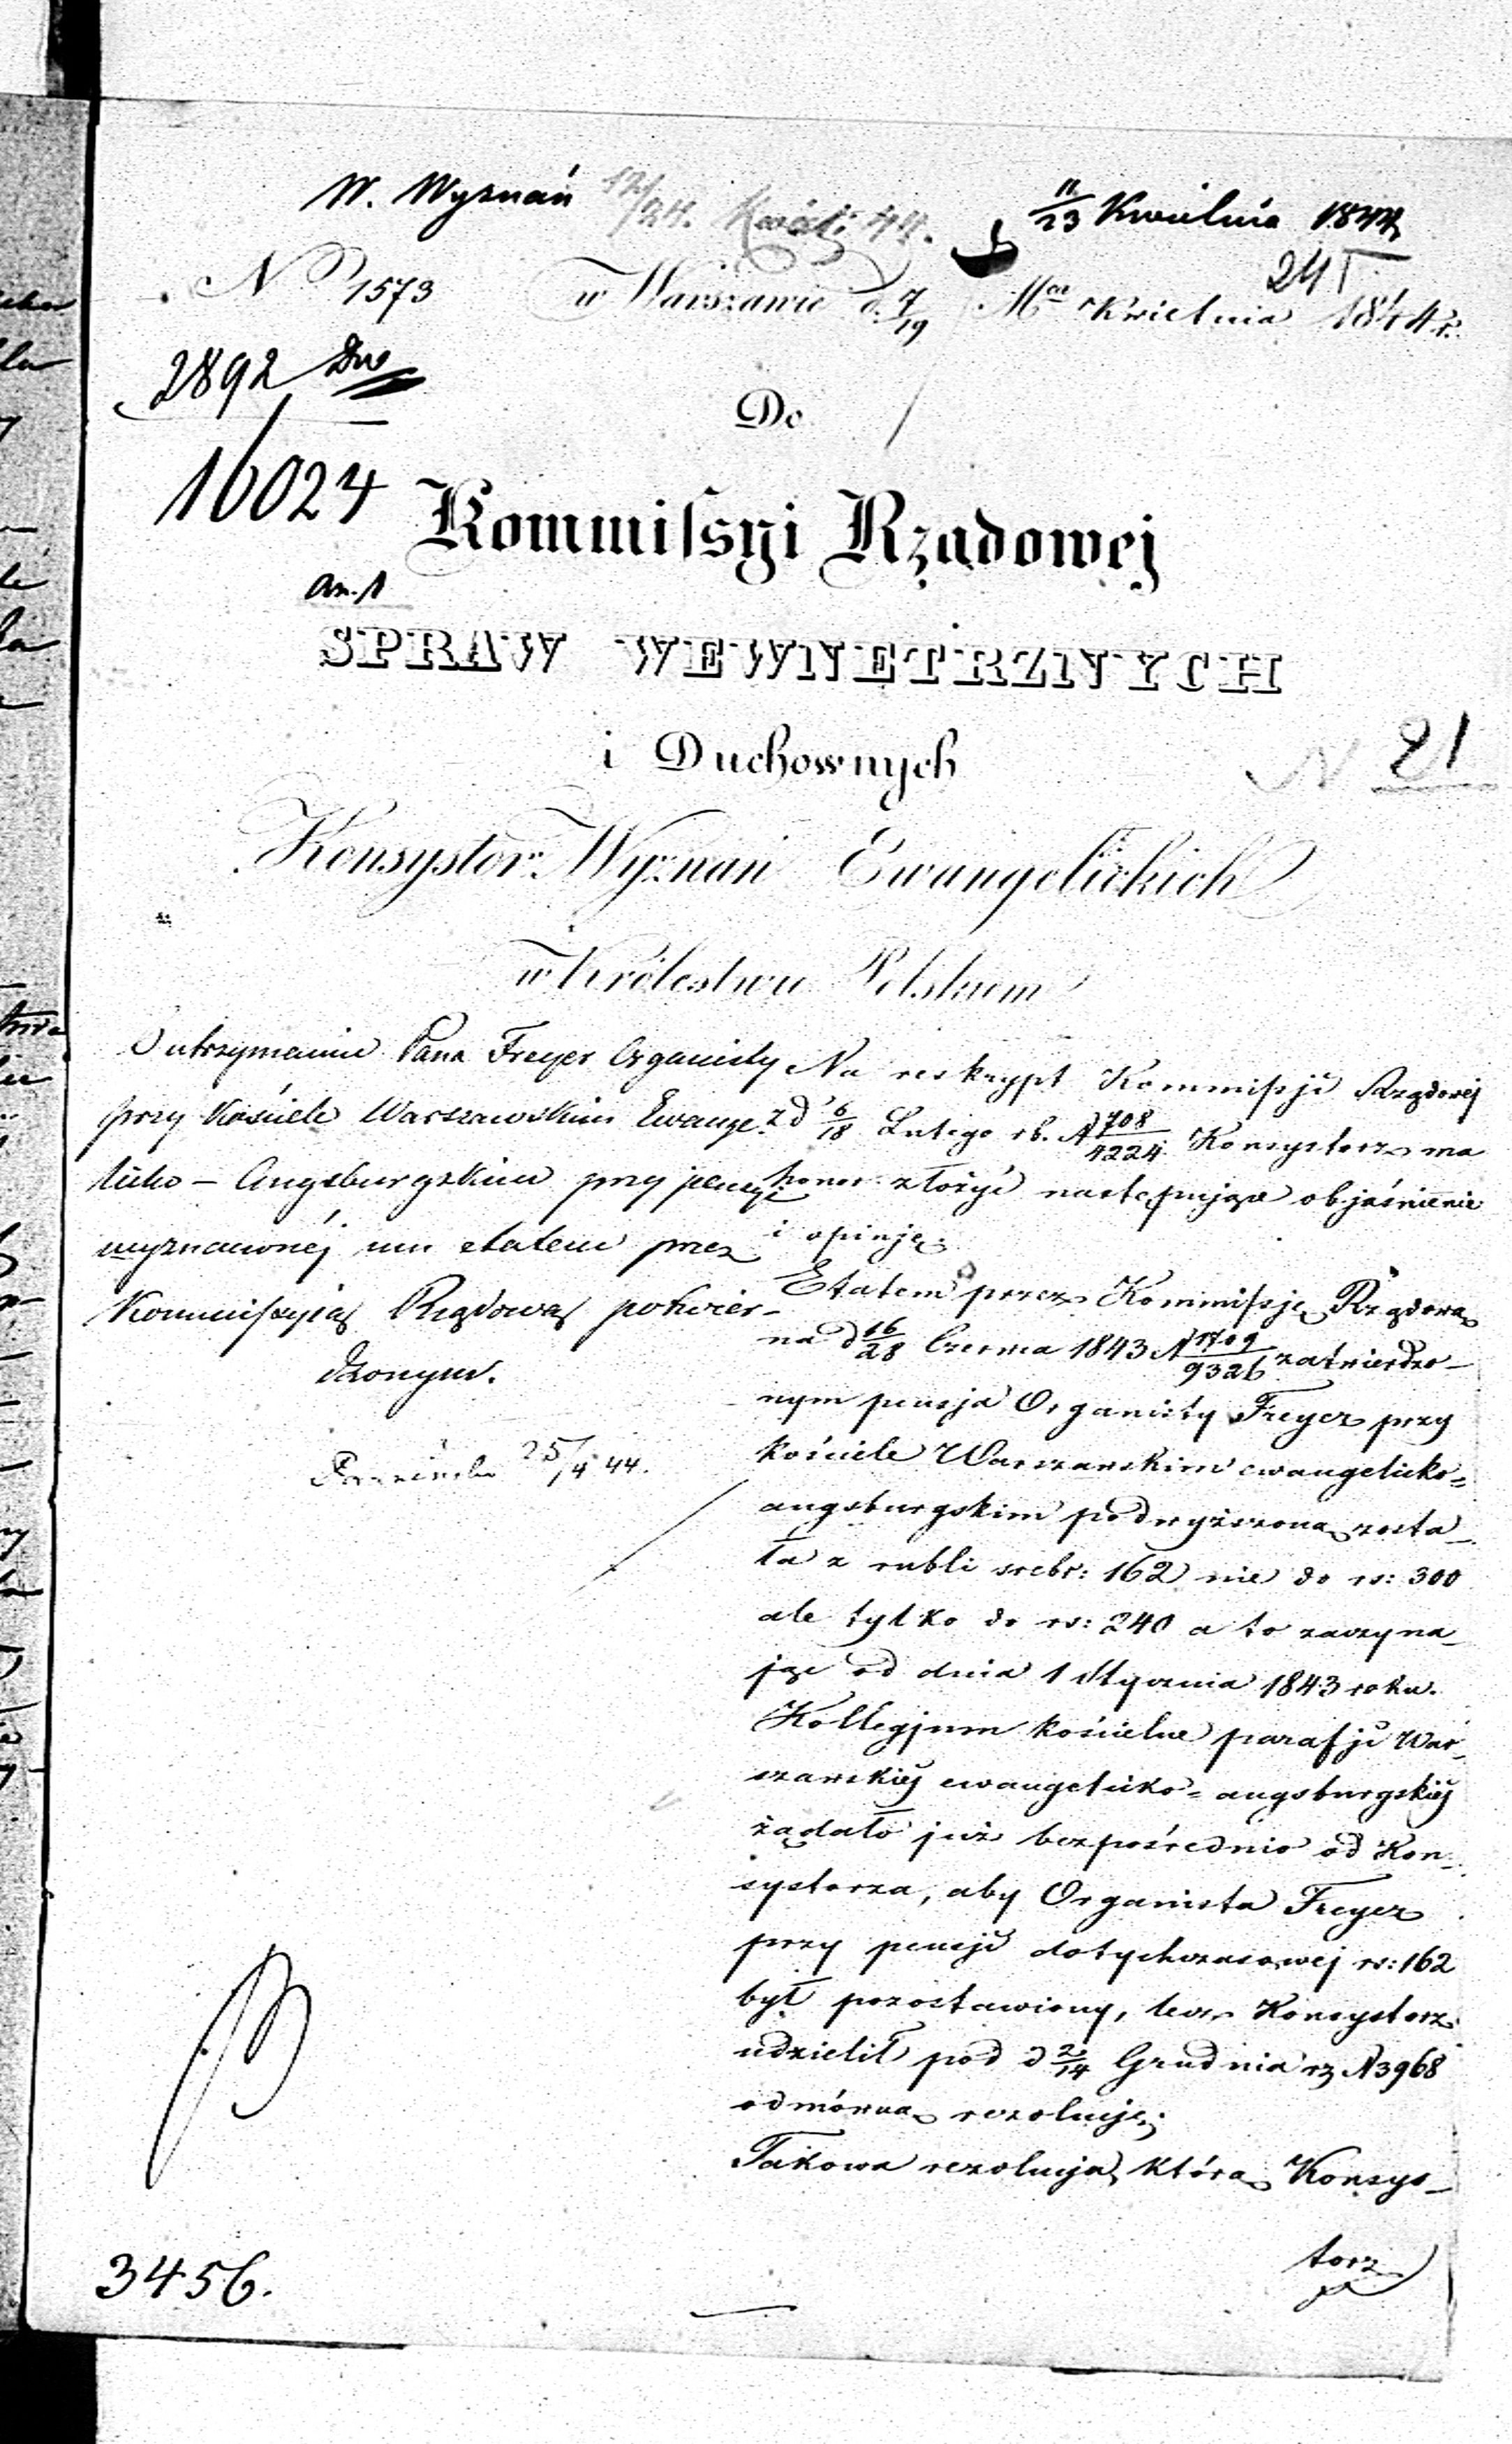 W. Wyznań 12/24. Kwiet: 44. 11/23 Kwietnia 1844
24
No 1573 w Warszawie d. 7/19 Mca Kwietnia 1844 r.
2892
16024
Do
Kommissyi Rządowej
an. 1
SPRAW WEWNĘTRZNYCH
i Duchownych
N 21
Konsystorz Wyznań Ewangelickich
w Królestwie Polskiem
O utrzymaniu Pana Freyer Organisty
przy Kościele Warszawskim Ewange-
licko - Augsburgskim przy pensyi
wyznaczonéj mu etatem przez
Kommissyią Rządową potwier-
dzonym.
25/4 44.
Na reskrypt Kommissji Rządowej
z d 6/18 Lutego rb. N 708/4224 Konsystorz ma
honor złożyć następujące objaśnienie
i opinję.
Etatem przez Kommissję Rządową
na d 16/28 Czerwca 1843 N 1709/9326 zatwierdzo-
nym pensja Organisty Freyer przy
kościele Warszawskim ewangelicko-
augsburgskim podwyższona zosta-
ła z rubli srebr: 162 nie do rs: 300
ale tylko do rs: 240 a to zaczyna-
jąc od dnia 1 Stycznia 1843 roku.
Kollegjum kościelne parafji War-
szawskiej ewangelicko-augsburgskiej
żądało już bezpośrednio od Kon-
systorza, aby Organista Freyer
przy pensji dotychczasowej rs: 162
był pozostawiony, lecz Konsystorz
udzielił pod d 2/14 Grudnia rz N 3968
odmówną rezolucję.
Takowa rezolucja, którą Konsys-
torz
3456.